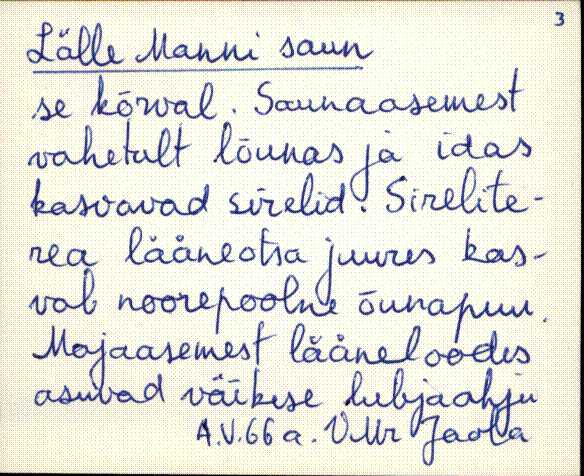 3
Lälle Manni saun
se kõrval. Saunaasemest
vahetult lõunas ja idas
kasvavad sirelid. Sirelite-
rea lääneotsa juures kas-
vab noorepoolne õunapuu.
Majaasemest lääneloodes
asuvad väikese lubjaahju
A.V.66 a. V. Mr Jaola